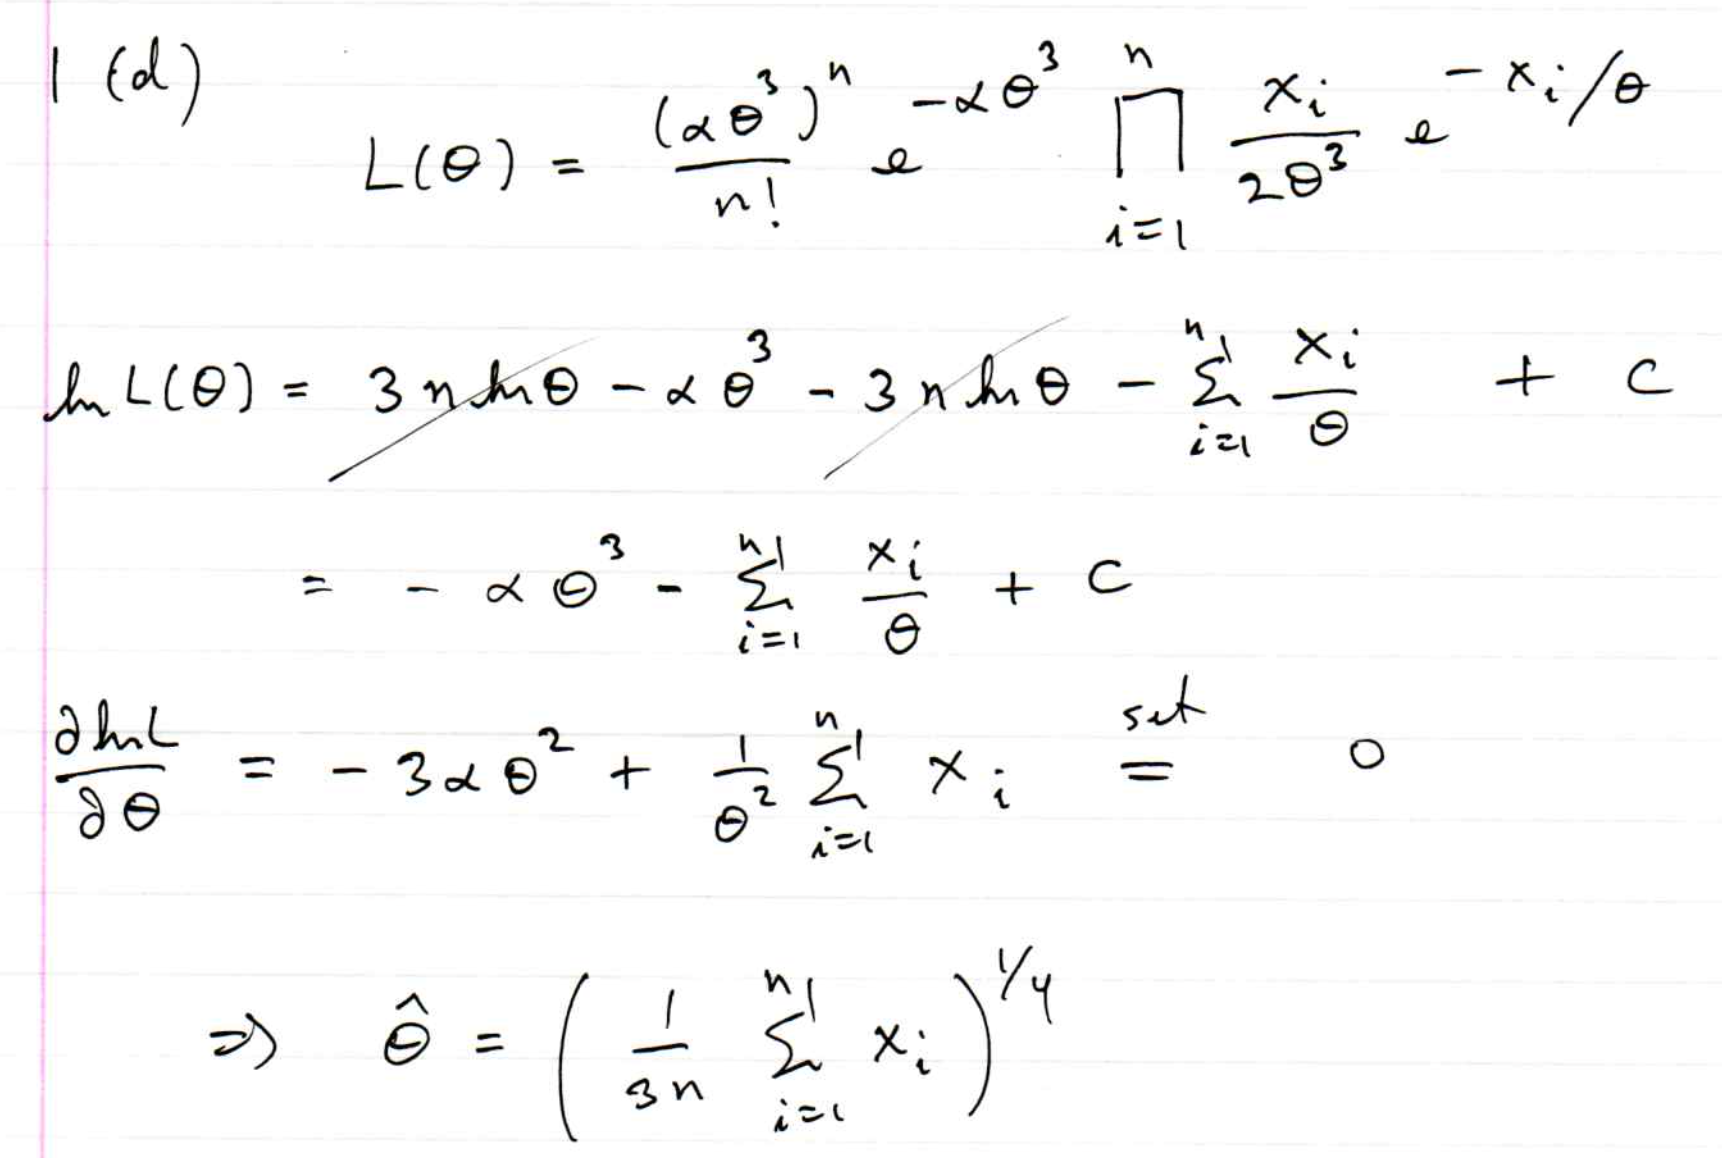 1 (d)
L(θ) = (αθ³)ⁿ / n! e^(-αθ³) ∏_{i=1}^{n} x_i / 2θ³ e^(-x_i/θ)
ln L(θ) = 3 n ln θ - αθ³ - 3 n ln θ - ∑_{i=1}^{n} x_i / θ + C
= - αθ³ - ∑_{i=1}^{n} x_i / θ + C
∂ ln L / ∂θ = - 3αθ² + 1/θ² ∑_{i=1}^{n} x_i set = 0
⇒ θ̂ = ( 1 / 3n ∑_{i=1}^{n} x_i )^(1/4)